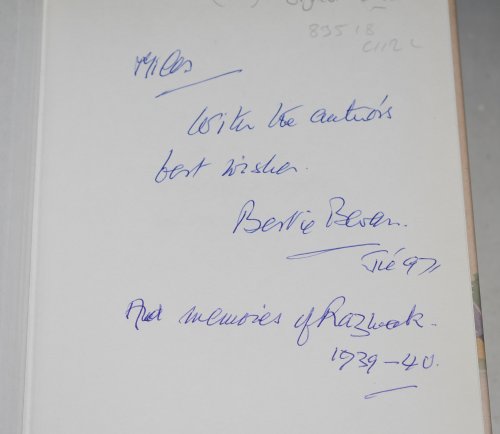 89518
Miles
With the author's
best wishes.
Bertie Bevan.
97
And memories of Razmak.
1939-40.